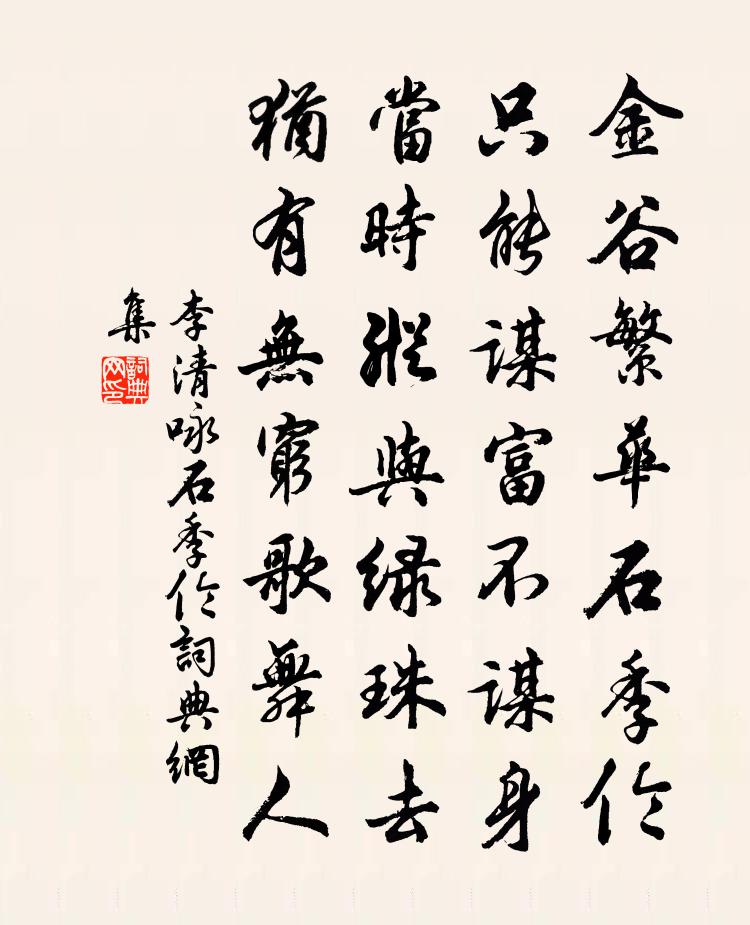 金谷繁華石季倫
只能謀富不謀身
當時縱與緑珠去
猶有無窮歌舞人
李清咏石季倫詞典網
集
詞典网印